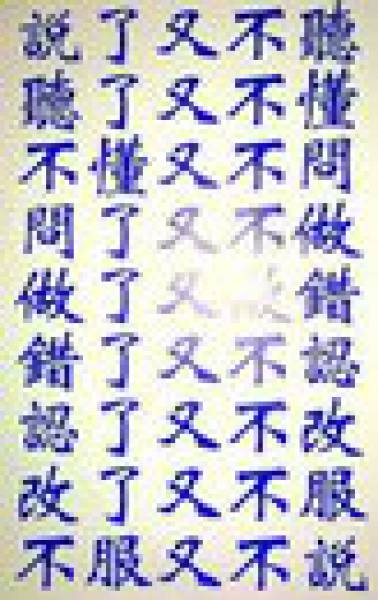 說了又不聽
聽了又不懂
不懂又不問
問了又不做
做了又做錯
錯了又不認
認了又不改
改了又不服
不服又不說